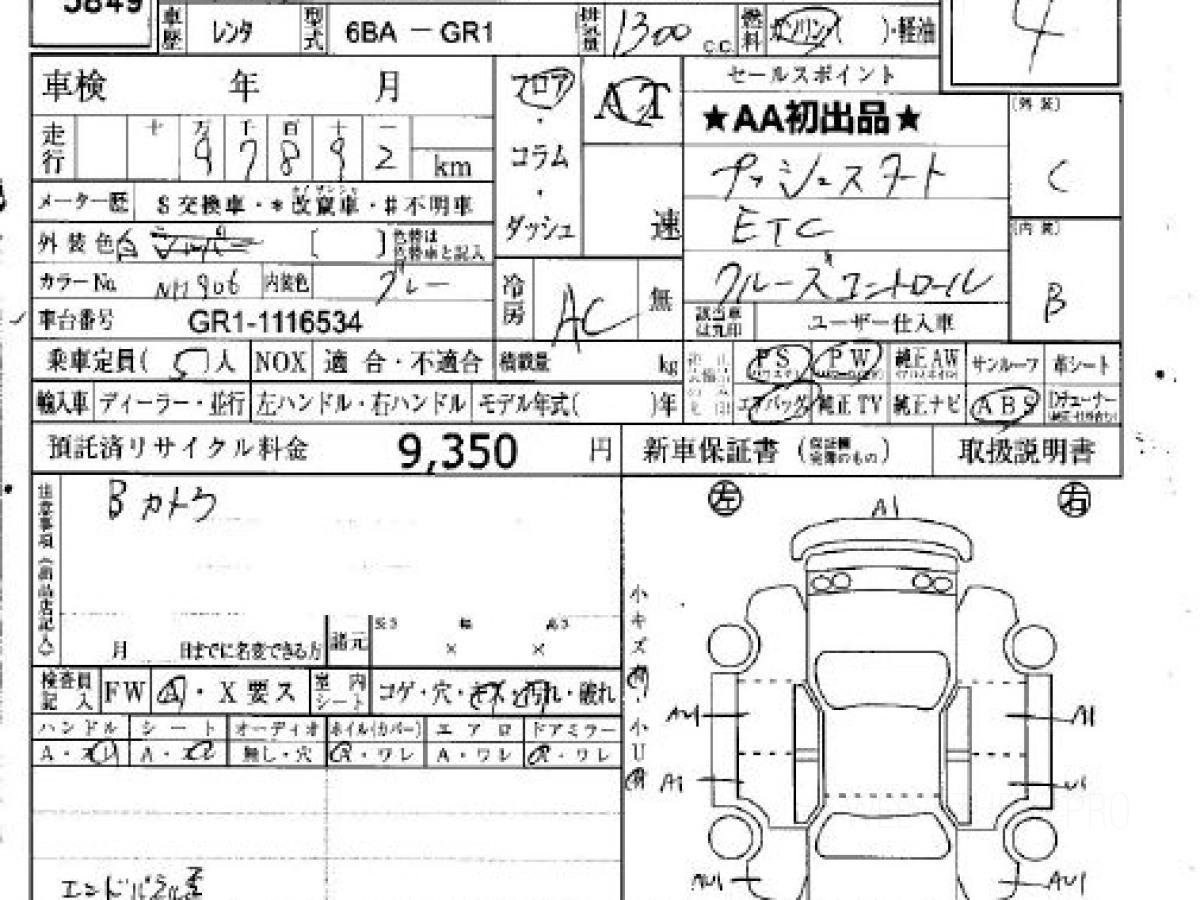 5849
車歴 レンタ 型式 6BA － GR1 排気量 1300 c.c. 燃料 ガソリン( )・軽油
4
車検 年 月
フロア・コラム・ダッシュ
AT
速
セールスポイント
★AA初出品★
プッシュスタート
ETC
クルーズコントロール
(外装)
C
(内装)
B
走行 十 万 千 百 十 一
9 7 8 9 2 km
メーター歴 S 交換車・＊改竄車・＃不明車
外装色 白 シルバー [ ] 色替は色替車と記入
カラーNo. NH906 内装色 グレー
冷房 AC 無
車台番号 GR1-1116534
該当車は丸印 ユーザー仕入車
乗車定員( 5 )人 NOX 適合・不適合 積載量 kg
PS PW 純正AW サンルーフ 革シート
輸入車 ディーラー・並行 左ハンドル・右ハンドル モデル年式( )年
エアバッグ 純正TV 純正ナビ ABS Dチューナー
預託済リサイクル料金 9,350 円 新車保証書 (保証欄完備のもの) 取扱説明書
注意事項(出品店記入)
Bカトウ
月 日までに名変できる方 諸元 長さ 幅 高さ
× ×
検査員記入 FW A・X要ス 室内シート コゲ・穴・キズ・汚れ・破れ
ハンドル シート オーディオ ホイル(カバー) エアロ ドアミラー
A・スレ A・スレ 無し・穴 A・ワレ A・ワレ A・ワレ
エンドパネル歪
左 右
A1
小キズ有・小U有
AU1 A1
A1 U1
AU1 AU1
PRO